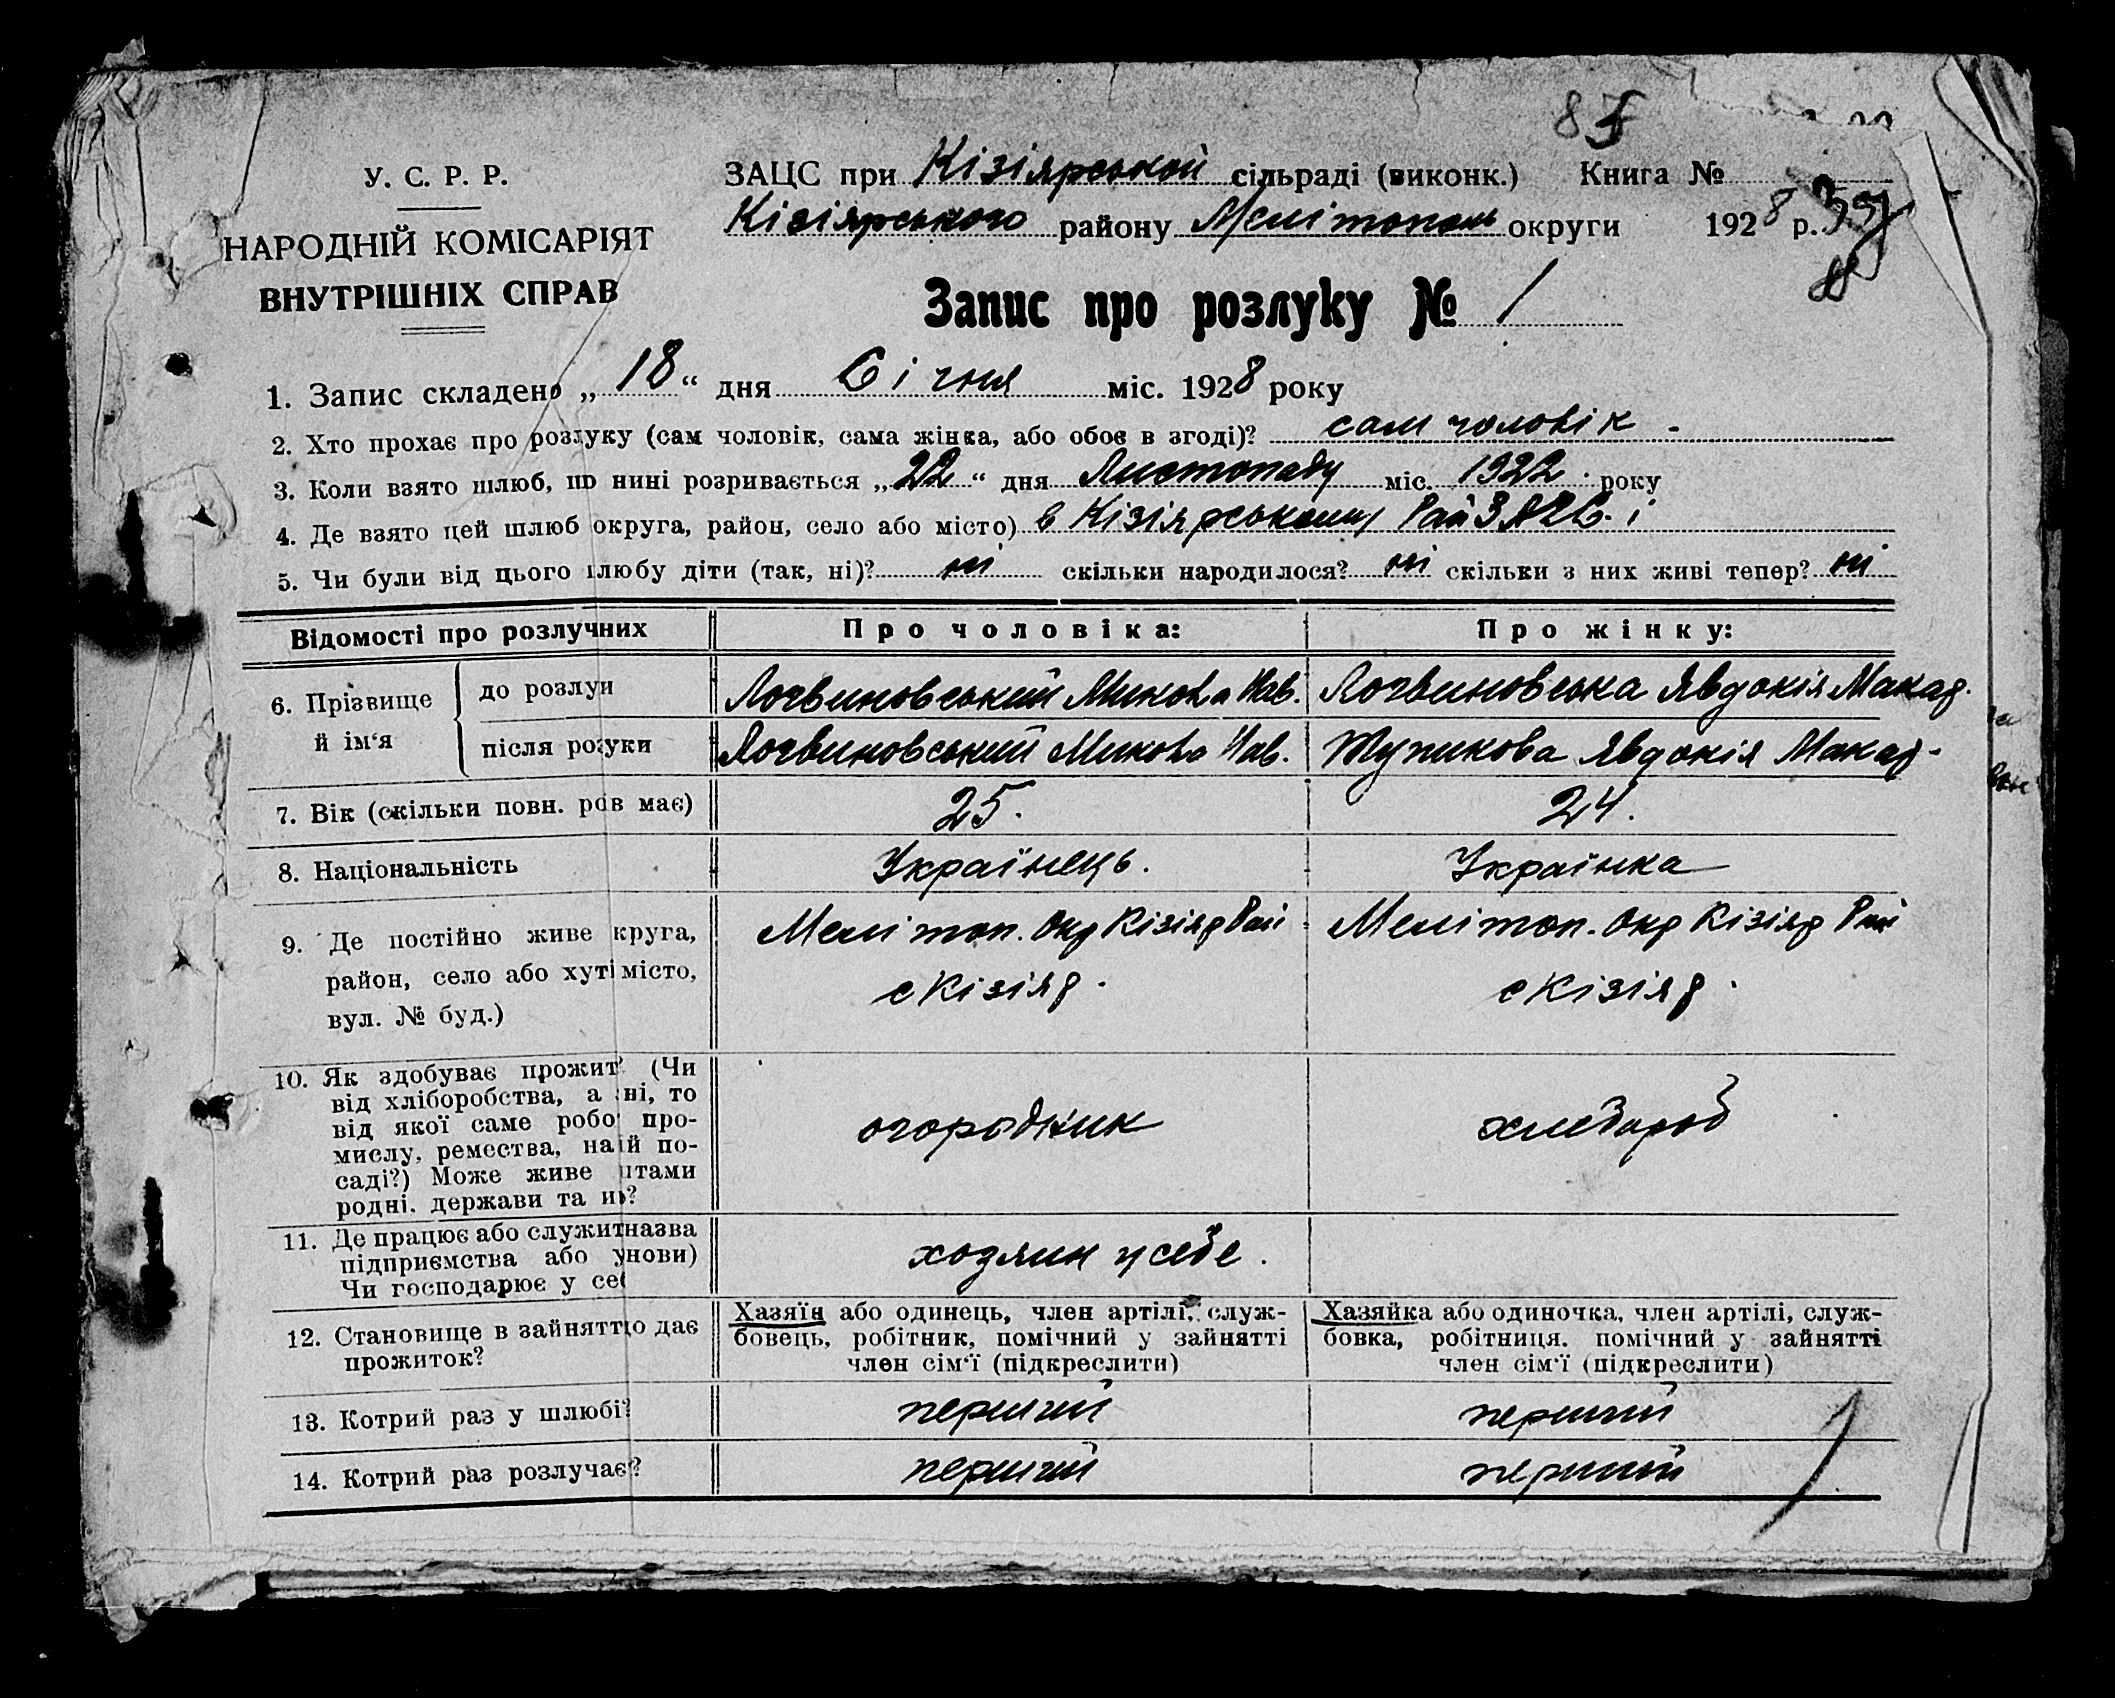 У. С. Р. Р.
НАРОДНІЙ КОМІСАРІЯТ
ВНУТРІШНІХ СПРАВ
ЗАЦС при Кізіярській сільраді (виконк.) Книга №
Кізіярського району Мелітополь округи 1928 р.
Запис про розлуку № 1
1. Запис складено „ 18 “ дня Січня міс. 1928 року
2. Хто прохає про розлуку (сам чоловік, сама жінка, або обоє в згоді)? сам чоловік -
3. Коли взято шлюб, що нині розривається „ 22 “ дня Листопаду міс. 1922 року
4. Де взято цей шлюб округа, район, село або місто) в Кізіярському Рай ЗАЦС.
5. Чи були від цього шлюбу діти (так, ні)? ні скільки народилося? ні скільки з них живі тепер? ні
Відомості про розлучних Про чоловіка: Про жінку:
6. Прізвище й ім‘я
до розлуки Логвиновський Микола Пав. Логвиновська Явдокія Макар.
після розлуки Логвиновський Микола Пав. Жупикова Явдокія Макар-
7. Вік (скільки повн. ров має) 25. 24.
8. Національність Українець. Українка
9. Де постійно живе круга,
район, село або хут місто,
вул. № буд.)
Мелітоп. Окр Кізіяр Рай
с Кізіяр.
Мелітоп. Окр Кізіяр Рай
с Кізіяр.
10. Як здобуває прожит (Чи
від хліборобства, а ні, то
від якої саме робо про-
мислу, ремества, на й по-
саді?) Може живе штами
родні, держави та ин?
огородник
хлебороб
11. Де працює або служит назва
підприємства або унови)
Чи господарює у себ
хозяин у себе.
12. Становище в зайнятт о дає
прожиток?
Хазяїн або одинець, член артілі, служ-
бовець, робітник, помічний у зайнятті
член сім‘ї (підкреслити)
Хазяйка або одиночка, член артілі, служ-
бовка, робітниця, помічний у зайнятті
член сім‘ї (підкреслити)
13. Котрий раз у шлюбі? перший перший
14. Котрий раз розлучає? перший перший